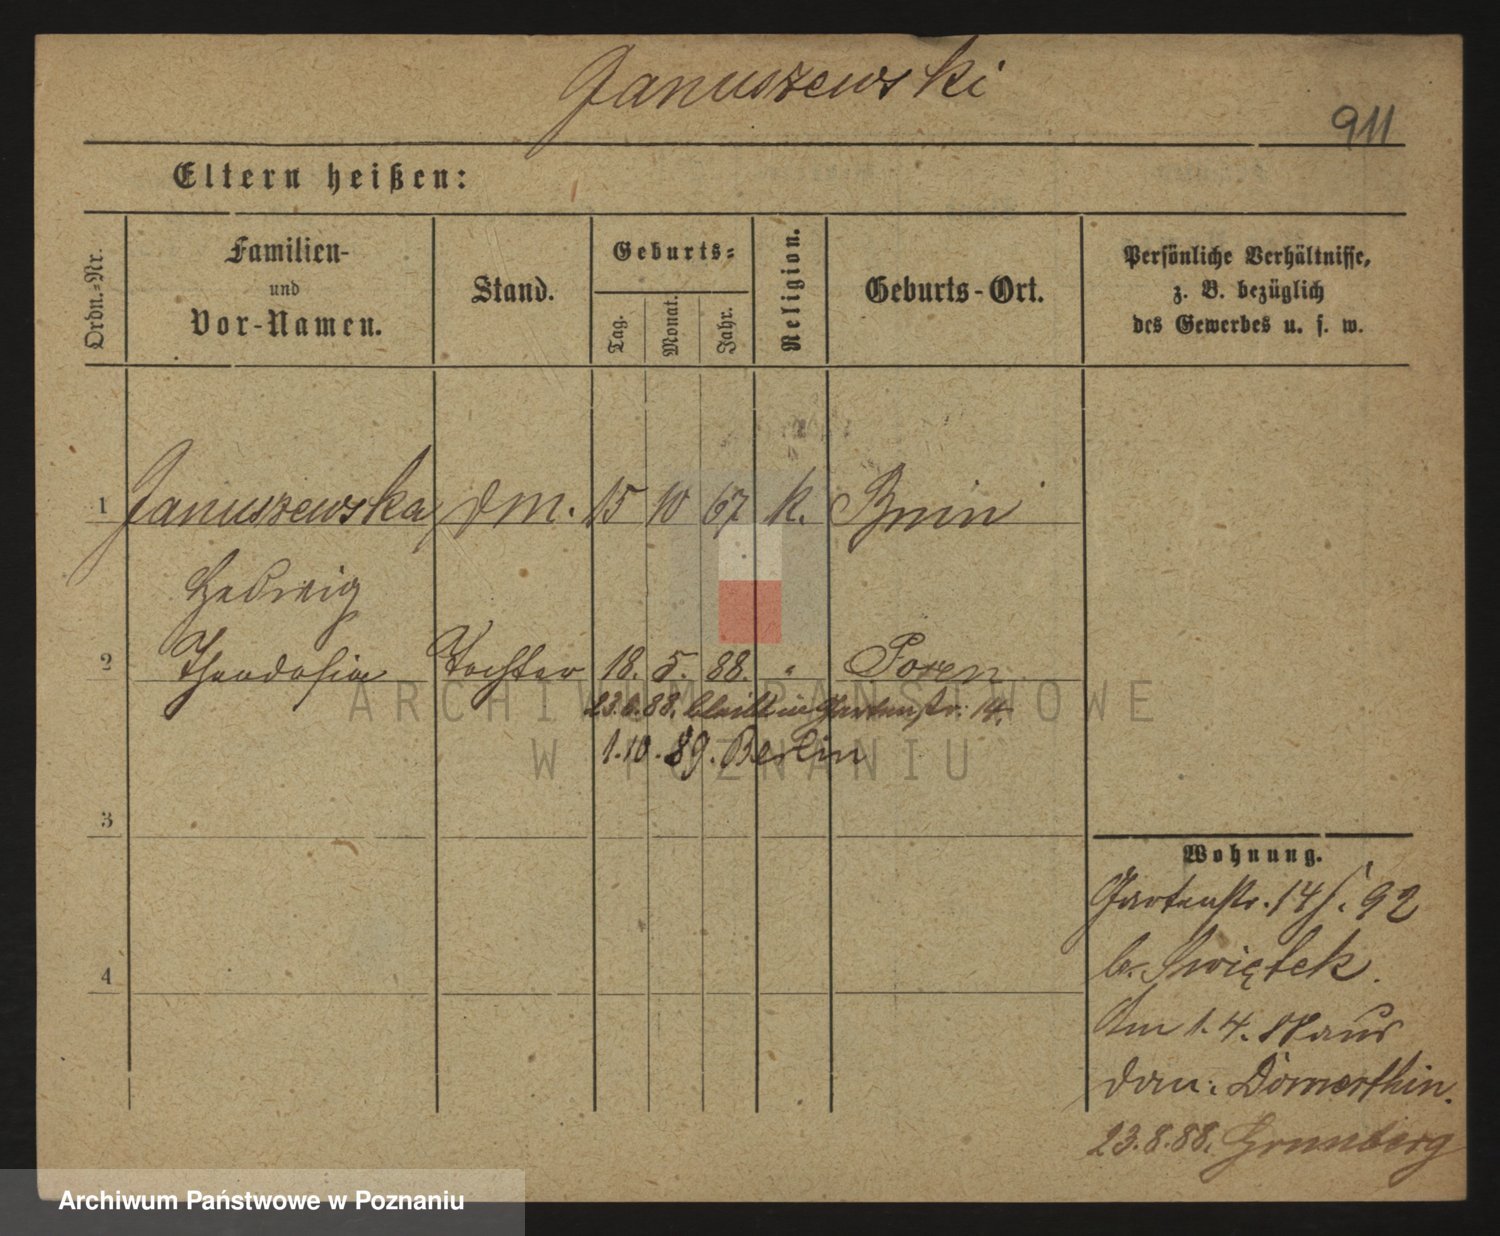 Januszewski
911
Eltern heißen:
Ordn.-Nr.
Familien-
und
Vor-Namen.
Stand.
Geburts-
Tag.
Monat.
Jahr.
Religion.
Geburts-Ort.
Persönliche Verhältnisse,
z. B. bezüglich
des Gewerbes u. s. w.
1 Januszewska, 15 10 67 k. Bnin
Hedwig
2 Theodosia Tochter 18. 5. 88. " Posen
23.6.88. bleibt in Gartenstr. 14.
ARCHIWUM PAŃSTWOWE
1.10.89. Berlin
W POZNANIU
3
Wohnung.
Gartenstr. 14 92
b. Swiętek.
4
1.4.
23.8.88.
Archiwum Państwowe w Poznaniu